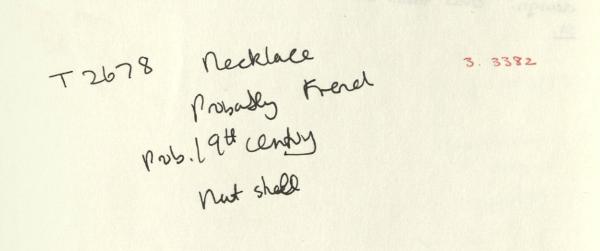 T2678 Necklace 3. 3382
Probably French
Prob. 19th century
Nut shell